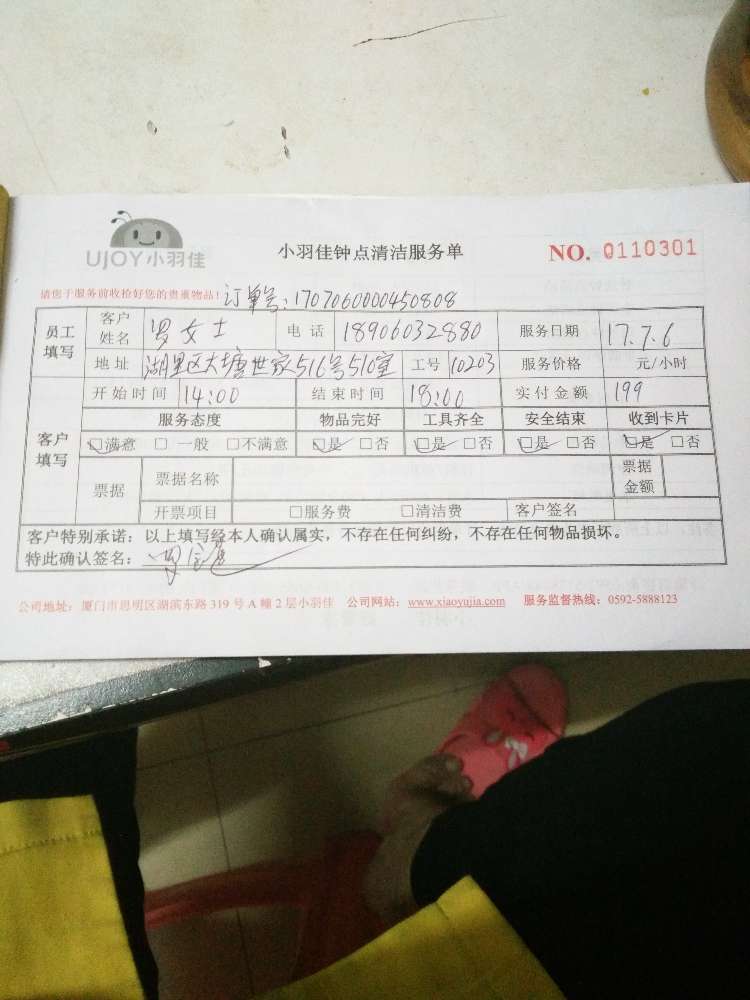 UJOY小羽佳
小羽佳钟点清洁服务单
NO. 0110301
请您于服务前收拾好您的贵重物品！
订单号：1707060000450808
员工填写
客户姓名 罗女士 电话 18906032880 服务日期 17.7.6
地址 湖里区大塘世家516号510室 工号 10203 服务价格 元/小时
客户填写
开始时间 14:00 结束时间 18:00 实付金额 199
服务态度 物品完好 工具齐全 安全结束 收到卡片
☑满意 □一般 □不满意 ☑是 □否 ☑是 □否 ☑是 □否 ☑是 □否
票据 票据名称 票据金额
开票项目 □服务费 □清洁费 客户签名
客户特别承诺：以上填写经本人确认属实，不存在任何纠纷，不存在任何物品损坏。
特此确认签名：
公司地址：厦门市思明区湖滨东路319号A幢2层小羽佳 公司网站：www.xiaoyujia.com 服务监督热线：0592-5888123